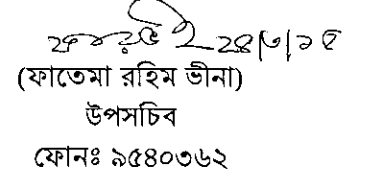 ২৪|৩|১৫
(ফাতেমা রহিম ভীনা)
উপসচিব
ফোনঃ ৯৫৪০৩৬২